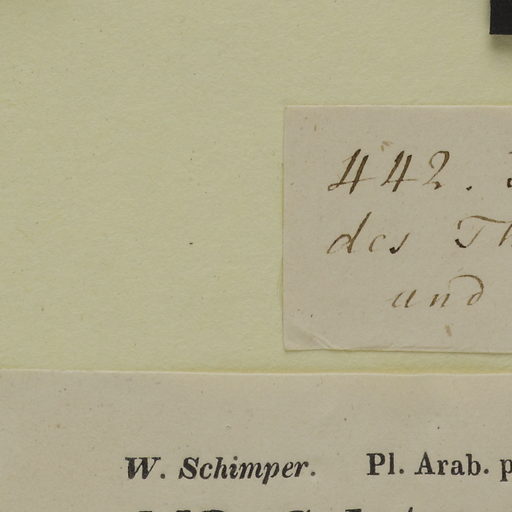 442.
des
und
W. Schimper. Pl. Arab.